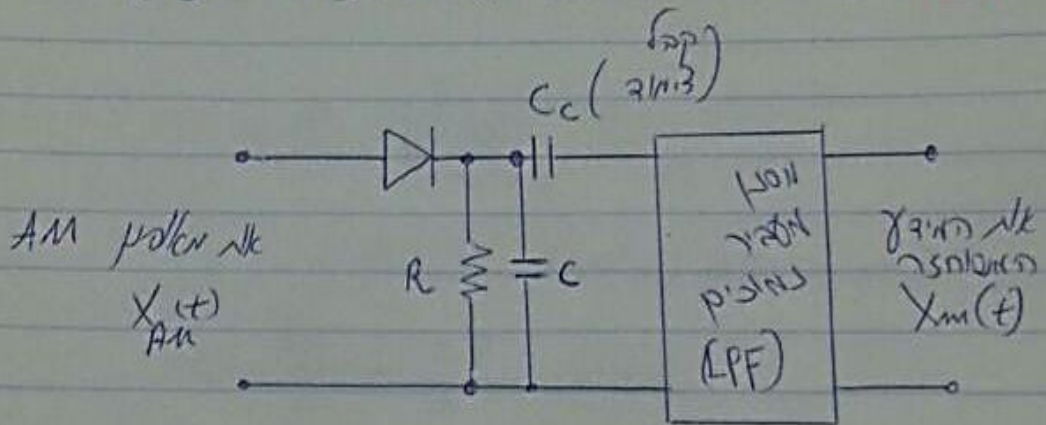 קבל
צימוד
C_C (
אות מאופנן AM
X_AM(t)
R
C
מסנן
מעביר
נמוכים
(LPF)
אות המידע
המשוחזר
X_m(t)